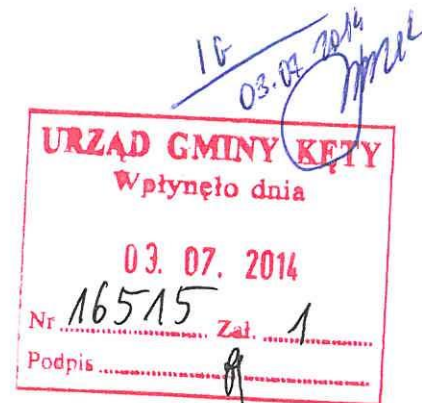 IG
03.07.2014
URZĄD GMINY KĘTY
Wpłynęło dnia
03. 07. 2014
Nr 16515 Zał. 1
Podpis